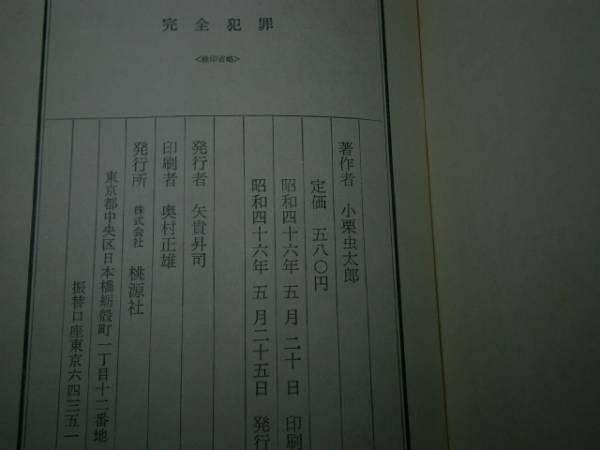 完全犯罪
<検印省略>
著作者 小栗虫太郎
定価 五八〇円
昭和四十六年 五月二十日 印刷
昭和四十六年 五月二十五日 発行
発行者 矢貴昇司
印刷者 奥村正雄
発行所 株式会社 桃源社
東京都中央区日本橋蛎殻町一丁目十二番地
振替口座東京六四三五一